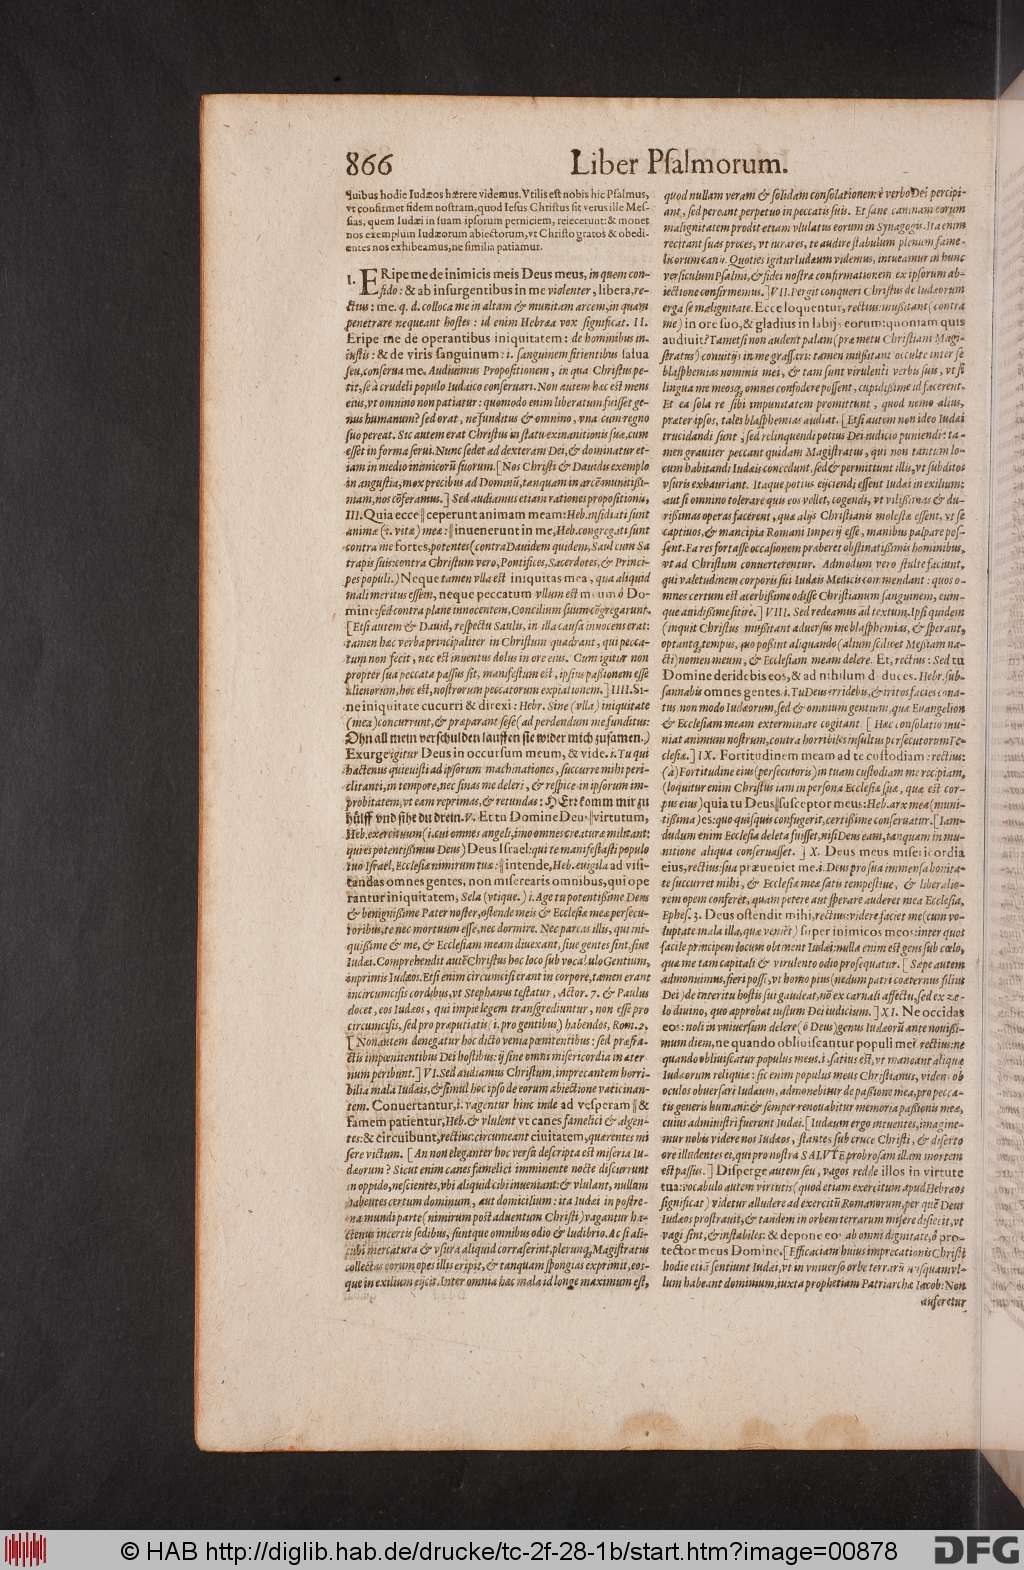 866 Liber Pſalmorum.
quibus hodie Iudæos hærere videmus. Vtilis eſt nobis hic Pſalmus,
vt confirmet fidem noſtram, quod Ieſus Chriſtus ſit verus ille Meſ-
ſias, quem Iudæi in ſuam ipſorum perniciem, reiecerunt: & monet
nos exemplum Iudæorum abiectorum, vt Chriſto gratos & obedi-
entes nos exhibeamus, ne ſimilia patiamur.
I. ERipe me de inimicis meis Deus meus, in quem con-
fido: & ab inſurgentibus in me violenter, libera, re-
ctius: me. q. d. colloca me in altam & munitam arcem, in quam
penetrare nequeant hoſtes: id enim Hebræa vox ſignificat. II.
Eripe me de operantibus iniquitatem: de hominibus in-
iuſtis: & de viris ſanguinum: i. ſanguinem ſitientibus ſalua
ſeu, conſerua me. Audiuimus Propoſitionem, in qua Chriſtus pe-
tit, ſe à crudeli populo Iudaico conſeruari. Non autem hæc eſt mens
eius, vt omnino non patiatur: quomodo enim liberatum fuiſſet ge-
nus humanum? ſed orat, ne funditus & omnino, vna cum regno
ſuo pereat. Sic autem erat Chriſtus in ſtatu exinanitionis ſuæ, cum
eſſet in forma ſerui. Nunc ſedet ad dexteram Dei, & dominatur et-
iam in medio inimicorũ ſuorum. [Nos Chriſti & Dauidis exemplo
in anguſtia, mox precibus ad Dominũ, tanquam in arcẽ munitißi-
mam, nos cõferamus.] Sed audiamus etiam rationes propoſitionis,
III. Quia ecce ‖ ceperunt animam meam: Heb. inſidiati ſunt
animæ (i. vitæ) meæ: ‖ inuenerunt in me, Heb. congregati ſunt
contra me fortes, potentes (contra Dauidem quidem, Saul cum Sa
trapis ſuis: contra Chriſtum vero, Pontifices, Sacerdotes, & Princi-
pes populi.) Neque tamen vlla eſt iniquitas mea, qua aliquid
mali meritus eſſem, neque peccatum vllum eſt meum ô Do-
mine: ſed contra plane innocentem, Concilium ſuum cõgregarunt.
[Etſi autem & Dauid, reſpectu Saulis, in illa cauſa innocens erat:
tamen hæc verba principaliter in Chriſtum quadrant, qui pecca-
tum non fecit, nec eſt inuentus dolus in ore eius. Cum igitur non
propter ſua peccata paſſus ſit, manifeſtum eſt, ipſius paßionem eſſe
alienorum, hoc eſt, noſtrorum peccatorum expiationem.] IIII. Si-
ne iniquitate cucurri & direxi: Hebr. Sine (vlla) iniquitate
(mea) concurrunt, & præparant ſeſe (ad perdendum me funditus:
Ohn all mein verſchulden lauffen ſie wider mich zuſamen.)
Exurge igitur Deus in occurſum meum, & vide. i. Tu qui
hactenus quieuiſti ad ipſorum machinationes, ſuccurre mihi peri-
clitanti, in tempore, nec ſinas me deleri, & reſpice in ipſorum im-
probitatem, vt eam reprimas, & retundas: HErr komm mir zu
hülff vnd ſihe du drein. V. Et tu Domine Deus ‖ virtutum,
Heb. exercituum (i. cui omnes angeli, imo omnes creaturæ militant:
qui es potentißimus Deus) Deus Iſrael: qui te manifeſtaſti populo
tuo Iſrael, Eccleſiæ nimirum tuæ: ‖ intende, Heb. euigila ad viſi-
tandas omnes gentes, non miſerearis omnibus, qui ope
rantur iniquitatem, Sela (vtique.) i. Age tu potentißime Deus
& benignißime Pater noſter, oſtende meis & Eccleſiæ meæ perſecu-
toribus, te nec mortuum eſſe, nec dormire. Nec parcas illis, qui ini-
quißime & me, & Eccleſiam meam diuexant, ſiue gentes ſint, ſiue
Iudæi. Comprehendit autẽ Chriſtus hoc loco ſub vocabulo Gentium,
inprimis Iudæos. Etſi enim circumciſi erant in corpore, tamen erant
incircumciſis cordibus, vt Stephanus teſtatur, Actor. 7. & Paulus
docet, eos Iudæos, qui impie legem transgrediuntur, non eſſe pro
circumciſis, ſed pro præputiatis (i. pro gentibus) habendos, Rom. 2.
[Non autem denegatur hoc dicto venia pœnitentibus: ſed præfra-
ctis impœnitentibus Dei hoſtibus: ij ſine omni miſericordia in æter
num peribunt.] VI. Sed audiamus Chriſtum, imprecantem horri-
bilia mala Iudæis, & ſimul hoc ipſo de eorum abiectione vaticinan-
tem. Conuertantur, i. vagentur hinc inde ad veſperam ‖ &
famem patientur, Heb. & vlulent vt canes famelici & algen-
tes: & circuibunt, rectius: circumeant ciuitatem, quærentes mi
ſere victum. [An non eleganter hoc verſu deſcripta eſt miſeria Iu-
dæorum? Sicut enim canes famelici imminente nocte diſcurrunt
in oppido, neſcientes, vbi aliquid cibi inueniant: & vlulant, nullum
habentes certum dominum, aut domicilium: ita Iudæi in poſtre-
na mundi parte (nimirum poſt aduentum Chriſti) vagantur ha-
ctenus incertis ſedibus, ſuntque omnibus odio & ludibrio. Ac ſi ali-
cubi mercatura & vſura aliquid corraſerint, plerunq; Magiſtratus
collectas eorum opes illis eripit, & tanquam ſpongias exprimit, eos-
que in exilium eijcit. Inter omnia hæc mala id longe maximum eſt,
quod nullam veram & ſolidam conſolationem è verbo Dei percipi-
ant, ſed pereant perpetuo in peccatis ſuis. Et ſane caninam eorum
malignitatem prodit etiam vlulatus eorum in Synagogis. Ita enim
recitant ſuas preces, vt iurares, te audire ſtabulum plenum fame-
licorum canũ. Quoties igitur Iudæum videmus, intueamur in hunc
verſiculum Pſalmi, & fidei noſtræ confirmationem ex ipſorum ab-
iectione confirmemus.] VII. Pergit conqueri Chriſtus de Iudæorum
erga ſe malignitate. Ecce loquentur, rectius: mußitant (contra
me) in ore ſuo, & gladius in labijs eorum: quoniam quis
audiuit? Tametſi non audent palam (præ metu Chriſtiani Magi-
ſtratus) conuitijs in me graſſari: tamen mußitant occulte inter ſe
blaſphemias nominis mei, & tam ſunt virulenti verbis ſuis, vt ſi
lingua me meosq; omnes confodere poſſent, cupidißime id facerent.
Et ea ſola re ſibi impunitatem promittunt, quod nemo alius,
præter ipſos, tales blaſphemias audiat. [Etſi autem non ideo Iudæi
trucidandi ſunt, ſed relinquendi potius Dei iudicio puniendi: ta-
men grauiter peccant quidam Magiſtratus, qui non tantum lo-
cum habitandi Iudæis concedunt, ſed & permittunt illis, vt ſubditos
vſuris exhauriant. Itaque potius eijciendi eſſent Iudæi in exilium:
aut ſi omnino tolerare quis eos vellet, cogendi, vt vilißimas & du-
rißimas operas facerent, quæ alijs Chriſtianis moleſtæ eſſent, vt ſe
captiuos, & mancipia Romani Imperij eſſe, manibus palpare poſ-
ſent. Ea res fortaſſe occaſionem præberet obſtinatißimis hominibus,
vt ad Chriſtum conuerterentur. Admodum vero ſtulte faciunt,
qui valetudinem corporis ſui Iudæis Medicis commendant: quos o-
mnes certum eſt acerbißime odiſſe Chriſtianum ſanguinem, eum-
que auidißime ſitire.] VIII. Sed redeamus ad textum. Ipſi quidem
(inquit Chriſtus mußitant aduerſus me blaſphemias, & ſperant,
optantq; tempus, quo poßint aliquando (alium ſcilicet Meßiam na-
cti) nomen meum, & Eccleſiam meam delere. Et, rectius: Sed tu
Domine deridebis eos, & ad nihilum deduces. Hebr. ſub-
ſannabis omnes gentes. i. Tu Deus irridebis, & irritos facies cona-
tus non modo Iudæorum, ſed & omnium gentium, quæ Euangelion
& Eccleſiam meam exterminare cogitant. [Hæc conſolatio mu-
niat animum noſtrum, contra horribiles inſultus perſecutorum Ec-
cleſiæ.] IX. Fortitudinem meam ad te cuſtodiam: rectius:
(à) Fortitudine eius (perſecutoris) in tuam cuſtodiam me recipiam,
(loquitur enim Chriſtus iam in perſona Eccleſiæ ſuæ, quæ eſt cor-
pus eius) quia tu Deus ‖ ſuſceptor meus: Heb. arx mea (muni-
tißima) es: quo quiſquis confugerit, certißime conſeruatur. [Iam-
dudum enim Eccleſia deleta fuiſſet, niſi Deus eam, tanquam in mu-
nitione aliqua conſeruaſſet.] X. Deus meus miſericordia
eius, rectius: ſua præueniet me. i. Deus pro ſua immenſa bonita-
te ſuccurret mihi, & Eccleſiæ meæ ſatis tempeſtiue, & liberalio-
rem opem conferet, quam petere aut ſperare auderet mea Eccleſia,
Epheſ. 3. Deus oſtendit mihi, rectius: videre faciet me (cum vo-
luptate mala illa, quæ venient) ſuper inimicos meos: inter quos
facile principem locum obtinent Iudæi: nulla enim eſt gens ſub cœlo,
quæ me tam capitali & virulento odio proſequatur. [Sæpe autem
admonuimus, fieri poſſe, vt homo pius (nedum patri coæternus filius
Dei) de interitu hoſtis ſui gaudeat, nõ ex carnali affectu, ſed ex ze-
lo diuino, quo approbat iuſtum Dei iudicium.] XI. Ne occidas
eos: noli in vniuerſum delere (ô Deus) genus Iudæorũ ante nouißi-
mum diem, ne quando obliuiſcantur populi mei: rectius: ne
quando obliuiſcatur populus meus. i. ſatius eſt, vt maneant aliquæ
Iudæorum reliquiæ: ſic enim populus meus Chriſtianus, videns ob
oculos obuerſari Iudæum, admonebitur de paßione mea, pro pecca-
tis generis humani: & ſemper renouabitur memoria paßionis meæ,
cuius adminiſtri fuerunt Iudæi. [Iudæum ergo intuentes, imagine-
mur nobis videre nos Iudæos, ſtantes ſub cruce Chriſti, & diſerto
ore illudentes ei, qui pro noſtra SALVTE probroſam illam mortem
eſt paſſus.] Diſperge autem ſeu, vagos redde illos in virtute
tua: vocabulo autem virtutis (quod etiam exercitum apud Hebræos
ſignificat) videtur alludere ad exercitũ Romanorum, per quẽ Deus
Iudæos proſtrauit, & tandem in orbem terrarum miſere diſiecit, vt
vagi ſint, & inſtabiles: & depone eos ab omni dignitate, ô pro-
tector meus Domine. [Efficaciam huius imprecationis Chriſti
hodie etiã ſentiunt Iudæi, vt in vniuerſo orbe terrarũ nuſquam vl-
lum habeant dominum, iuxta prophetiam Patriarchæ Iacob: Non
auferetur
© HAB http://diglib.hab.de/drucke/tc-2f-28-1b/start.htm?image=00878
DFG